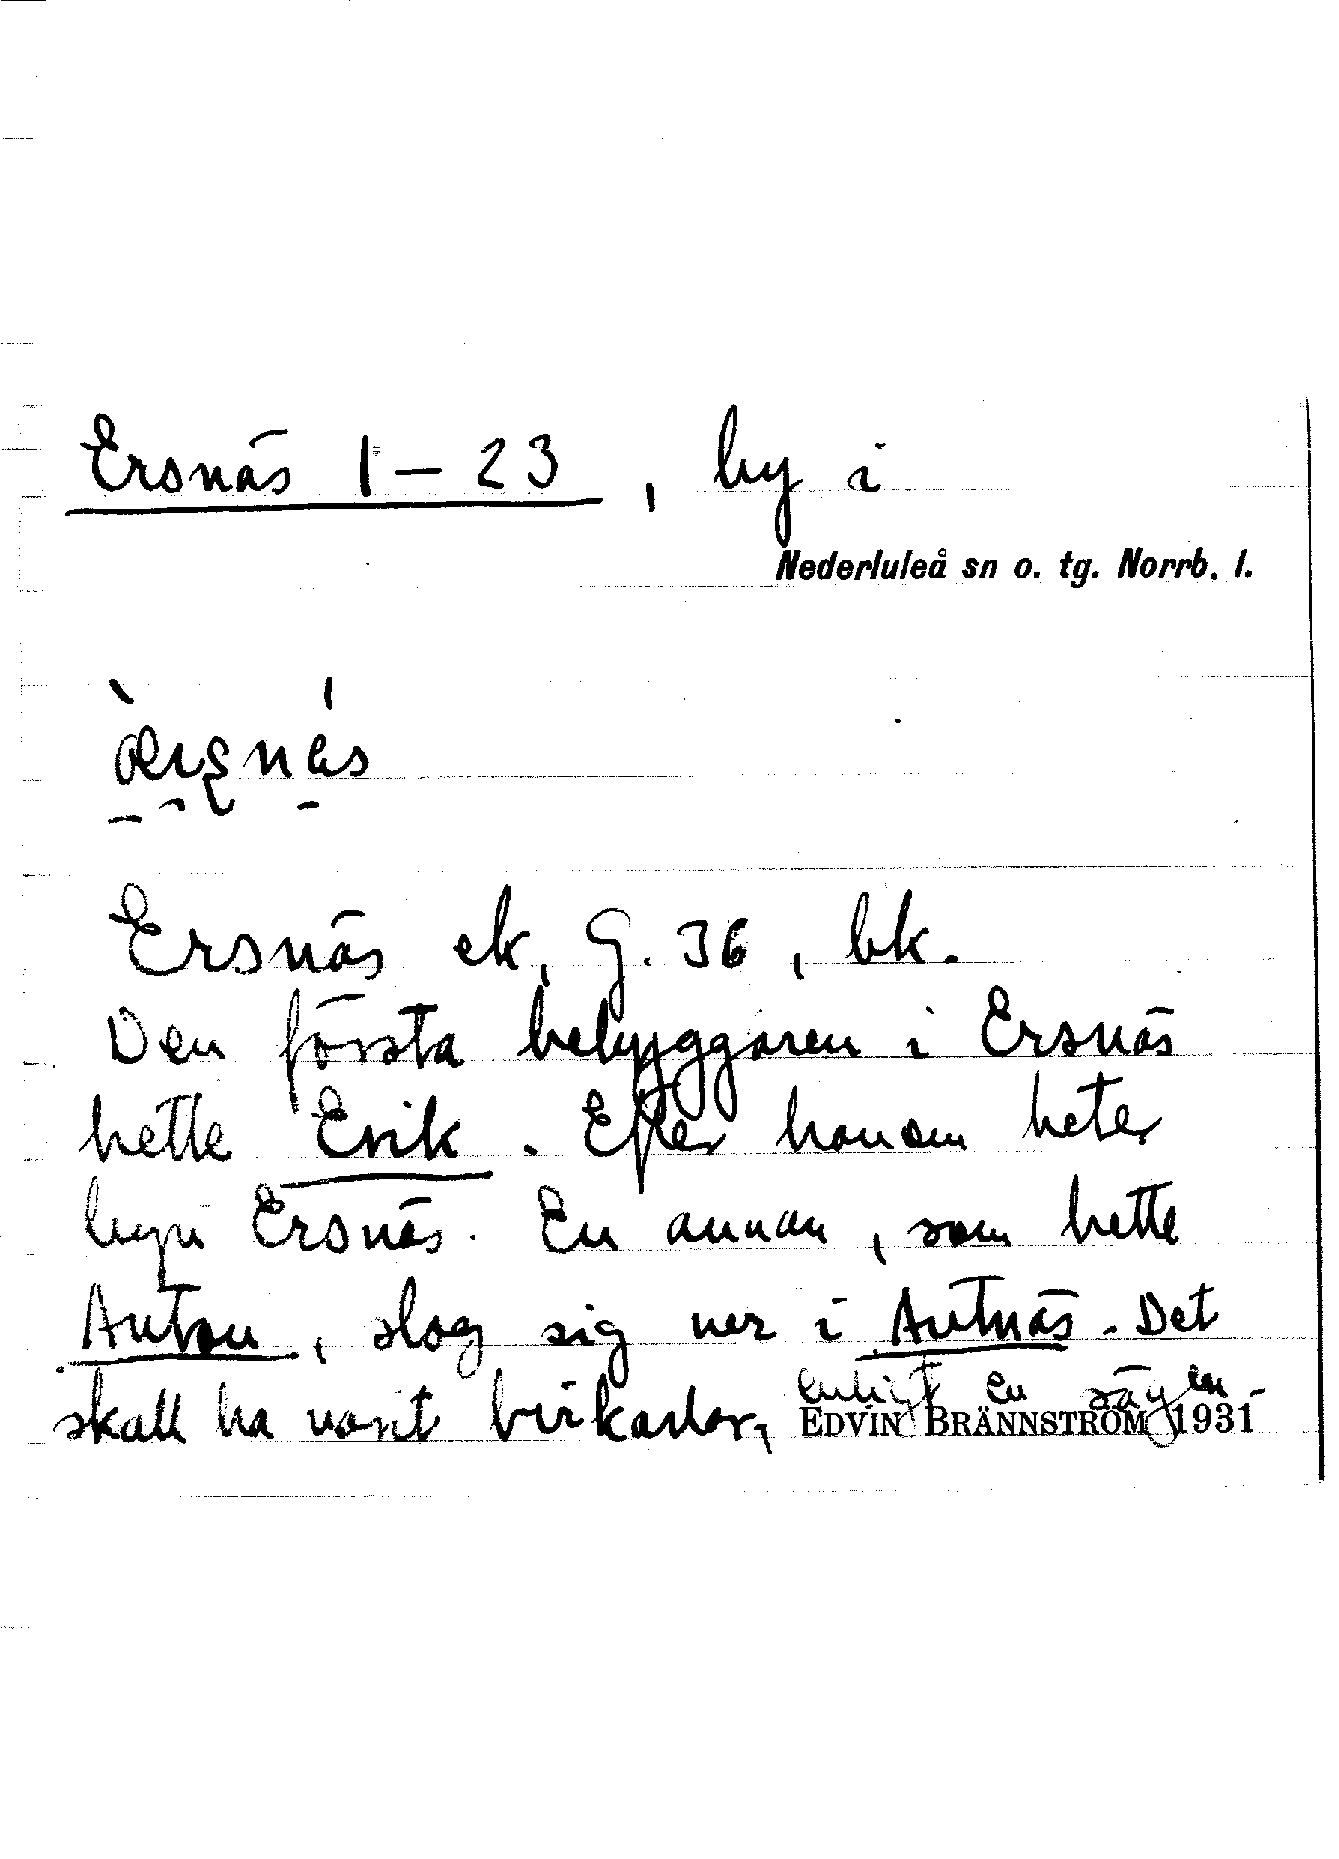 Ersnäs 1–23, by i
Nederluleå sn o. tg. Norrb. l.
Ersnäs ek, G. 36, bk.
Den första bebyggaren i Ersnäs
hette Erik. Efter honom heter
byn Ersnäs. En annan, som hette
Anton, slog sig ner i Antnäs. Det
skall ha varit birkarlar,
enligt en sägen
EDVIN BRÄNNSTRÖM 1931